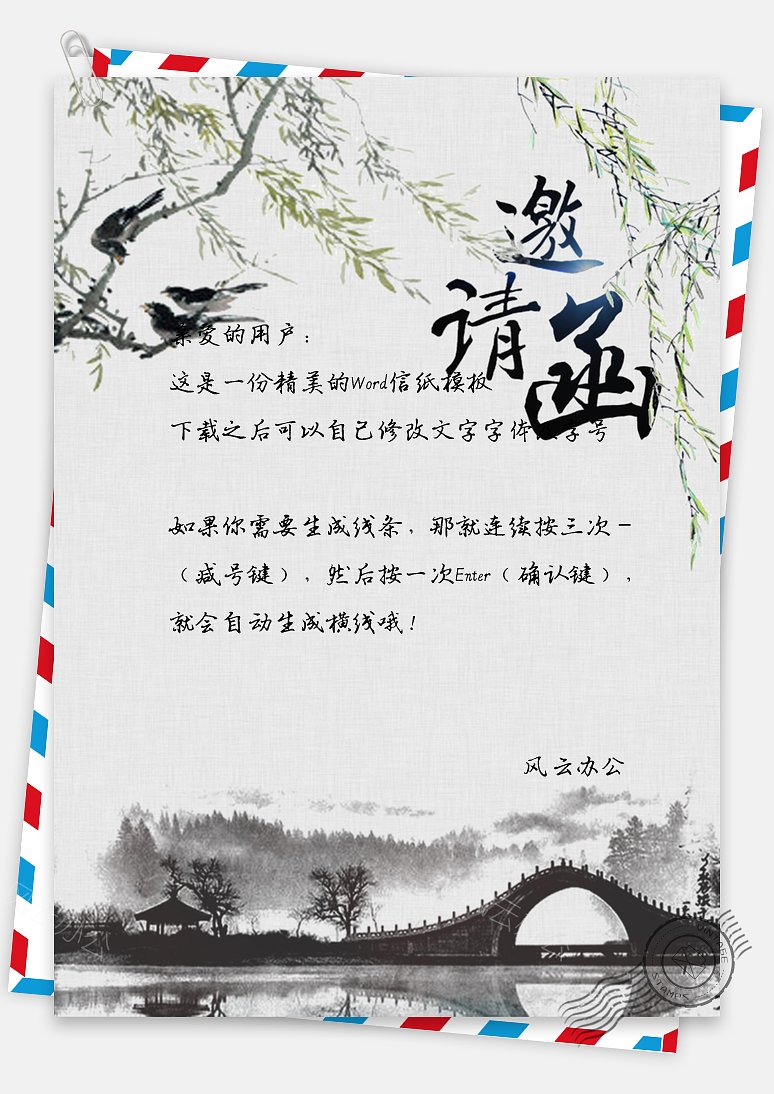 邀
请函
亲爱的用户：
这是一份精美的Word信纸模板
下载之后可以自己修改文字字体 字号
如果你需要生成线条，那就连续按三次-
（减号键），然后按一次Enter（确认键），
就会自动生成横线哦！
风云办公